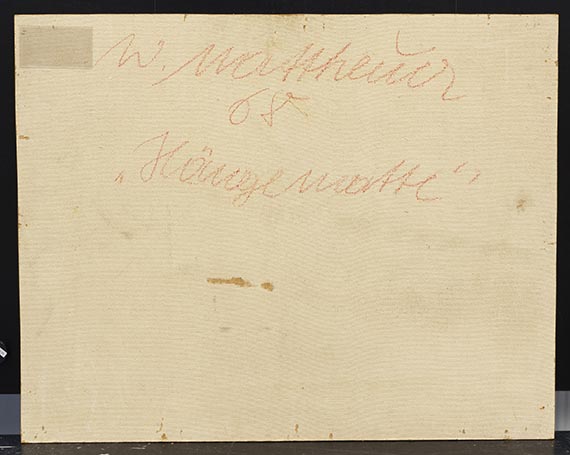 W. Mattheuer
68
„Hängematte"